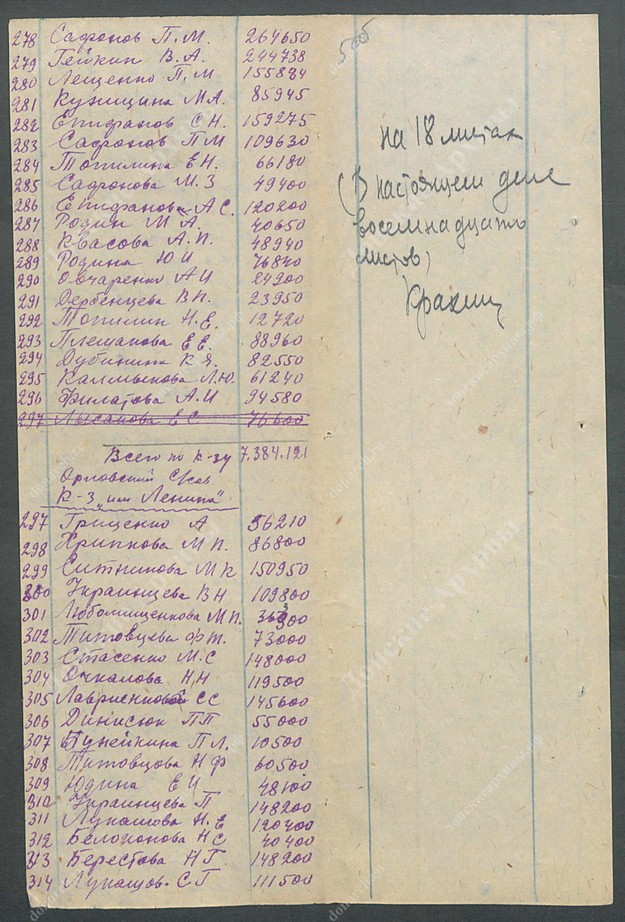 278 Сафонов П.М. 264650
279 Гейкин В.А. 244738
280 Лещенко П.М 155884
281 Кузницина М.А. 85945
282 Епифанов С.Н. 159275
283 Сафронов П.М 109630
284 Топилина Е.Н. 66180
285 Сафронова М.З 49400
286 Епифанов А.С. 120200
287 Родин М.А. 40650
288 Квасова А.П. 48940
289 Родина Ю.И 76840
290 Овчаренко А.И 24200
291 Дербенцева В.П. 23950
292 Топилин Н.Е. 12720
293 Плешакова Е.Е. 88960
294 Дубинина К.Я. 82550
295 Калмыкова Л.Ю. 61240
296 Филатова А.И 94580
297 Лысакова Е.С 76600
Всего по к-зу 7.384.121
Орловский С/сов
К-з "им Ленина"
297 Гриценко А 56210
298 Хрипкова М П. 86800
299 Ситникова М К 150950
300 Украинцева В Н 109800
301 Любомищенкова М П.
302 Титовцева Ф Т. 73000
303 Стасенко М.С 148000
304 Очкалова Н Н 119500
305 С С 145600
306 Динисюк П П 55000
307 Бунейкина П Л. 10500
308 Титовцова Н Ф 60500
309 Юдина Е И 48100
310 Украинцева П 148200
311 Лукашова Н. Е 120400
312 Белоконова Н С 40400
313 Берестова Н Г. 148200
314 Лукашов С Г 111500
на 18 листах
(В настоящем деле
восемнадцать
листов)